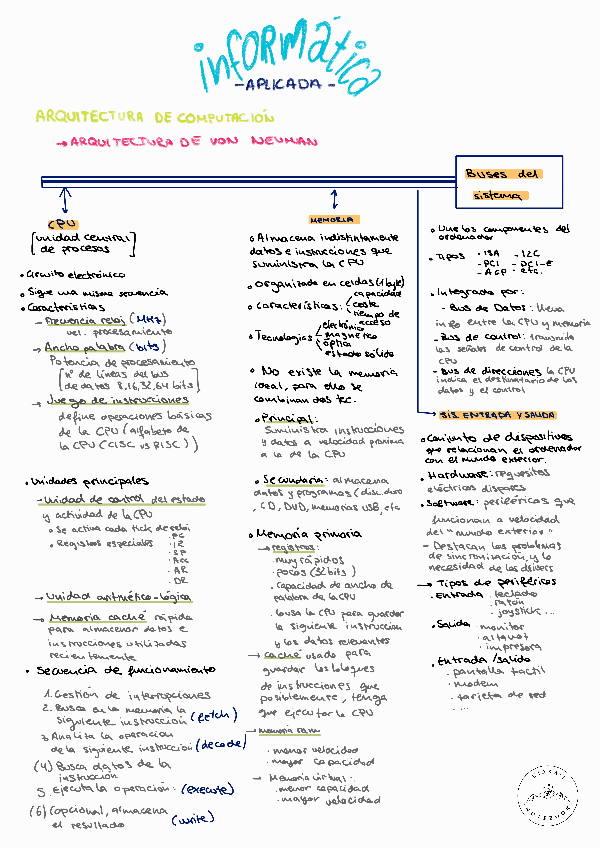 informática
- APLICADA -
ARQUITECTURA DE COMPUTACIÓN
→ ARQUITECTURA DE VON NEUMAN
Buses del
sistema
CPU
[unidad central
de procesos]
• Circuito electrónico
• Sigue una misma secuencia
• Características
- Frecuencia reloj (MHz)
vel. procesamiento
→ Ancho palabra (bits)
Potencia de procesamiento
[nº de líneas del bus
de datos 8,16,32,64 bits]
→ Juego de instrucciones
define operaciones básicas
de la CPU (alfabeto de
la CPU (CISC vs RISC)
• Unidades principales
- Unidad de control del estado
y actividad de la CPU
• Se activa cada tick de reloj
• Registros especiales
· PC
· IR
· SP
· Acc
· AR
· DR
→ Unidad aritmético-lógica
→ Memoria caché rápida
para almacenar datos e
instrucciones utilizadas
recientemente
• Secuencia de funcionamiento
1. Gestión de interrupciones
2. Busca en la memoria la
siguiente instrucción (fetch)
3. Analiza la operación
de la siguiente instrucción (decode)
(4) Busca datos de la
instrucción
5. Ejecuta la operación: (execute)
(6) (opcional, almacena
el resultado (write)
MEMORIA
• Almacena indistintamente
datos e instrucciones que
suministra la CPU
• Organizada en celdas (1 byte)
• Características:
capacidad
coste
tiempo de
acceso
• Tecnologías
electrónico
magnético
óptica
estado sólido
• No existe la memoria
ideal, para ello se
combinan dos tec.
• Principal:
Suministra instrucciones
y datos a velocidad próxima
a la de la CPU
• Secundaria: almacena
datos y programas (disc. duro
, CD, DVD, memorias USB, etc
• Memoria primaria
→ registros:
· muy rápidos
· pocos (32 bits)
· capacidad de ancho de
palabra de la CPU
· lo usa la CPU para guardar
la siguiente instrucción
y los datos relevantes
→ caché usado para
guardar los bloques
de instrucciones que
posiblemente, tenga
que ejecutar la CPU
→ memoria ram:
· menor velocidad
· mayor capacidad
→ Memoria virtual:
· menor capacidad
· mayor velocidad
• Une los componentes del
ordenador
• Tipos · ISA - I2C
- PCI - PCI-E
- AGP - etc.
• Integrado por:
- Bus de Datos: lleva
info entre la CPU y memoria
- Bus de control: transmite
las señales de control de la
CPU
- Bus de direcciones la CPU
indica el destinatario de los
datos y el control
SIS. ENTRADA Y SALIDA
• Conjunto de dispositivos
que relacionan el ordenador
con el mundo exterior
• Hardware: requisitos
eléctricos dispares
• Software: periféricos que
funcionan a velocidad
del "mundo exterior"
- Destacan los problemas
de sincronización, y lo
necesidad de los drivers
→ Tipos de periféricos
• Entrada · teclado
· ratón
· joystick ...
• Salida · monitor
· altavoz
· impresora
• Entrada / salida
· pantalla táctil
· modem
· tarjeta de red
....